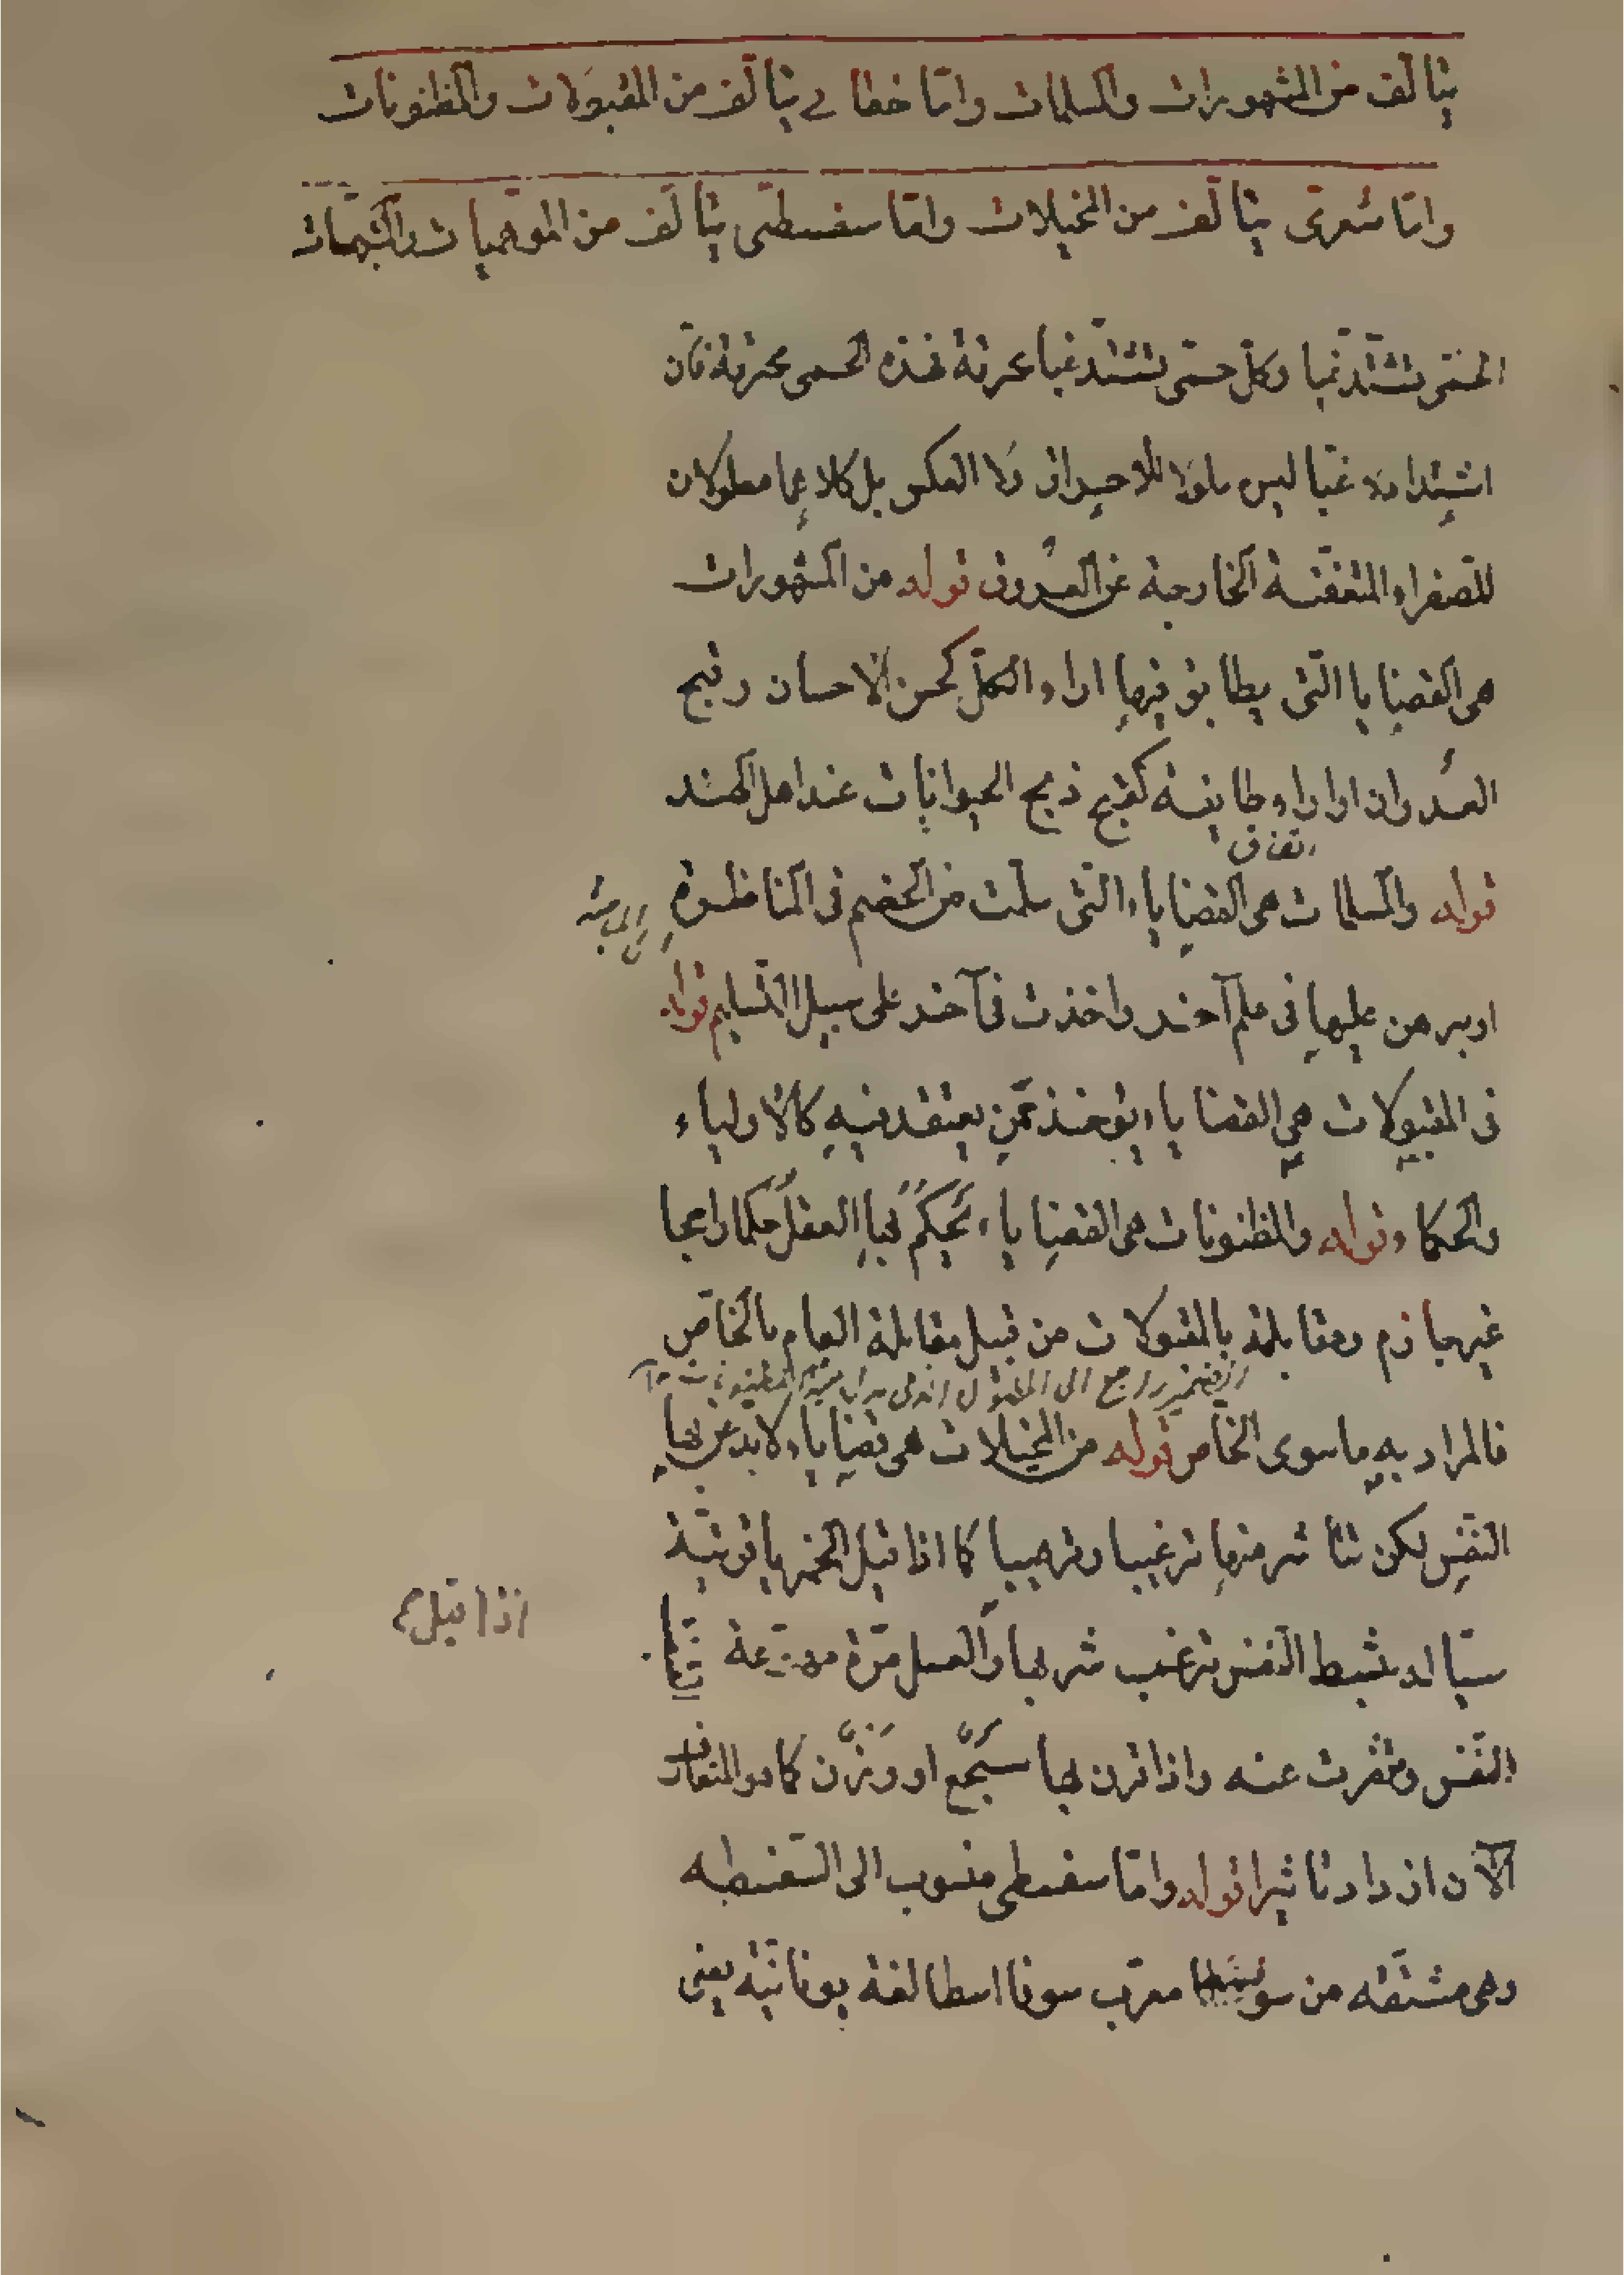 يتألف من المشهورات والمسلمات واما خطابي يتألف من المقبولات والمظنونات
واما شعرى يتألف من المخيلات واما سفسطى يتألف من الموهميات والشبهات
الحمّى تشتدّ غبا وكلّ حمّى تشتدّ غبا محرقة فهذه الحمى محرقة فان
اشتدادها غبّا ليس معلولا للاحراق ولا العكس بل كلاهما معلولان
للصفراء المتعفّنة الخارجة عن العروق قوله من المشهورات
هى القضايا الّتى يطابق فيها اراء الكلّ كحسن الاحسان وقبح
العُدوان او اراء طايفة كقبح ذبح الحيوانات عند اهل الهند
قوله والمسلمات هى القضاياء الّتى سلّمت من الخصم فى المناظرة
او برهن عليها فى علم آخر واخذت فى آخر على سبيل التّسليم قوله
فى المقبولات هى القضاياء يؤخذ عمّن يعتقد فيه كالاولياء
والحكماء قوله والمظنونات هى القضاياء تَحْكُمُ بها العقلُ حُكما راجحا
غير جازم ومقابلته بالمقبولات من قبيل مقابلة العام بالخاصّ
الضمير راجع الى
فالمراد به ما سوى الخاص قوله من المخيلات هى قضاياء لا يذعن بها
النّفس لكن تتأثر منها ترغيبا وترهيبا كما اذا قيل الخمر ياقوتيّة
اذا قيل
سيّالة تنبسط النّفس ترغب شربها والعسل مرّة مهوّعة
النّفس وتنفّرت عنه واذا قرن بها سَجّع او وَزّن كما هو المتعارف
الآن ازداد تاثيرا قوله وامّا سفسطى منسوب الى السّفسطه
وهى مشتقّه من سوفسطا معرّب سوفا اسطا لغة يونانيّه يعنى